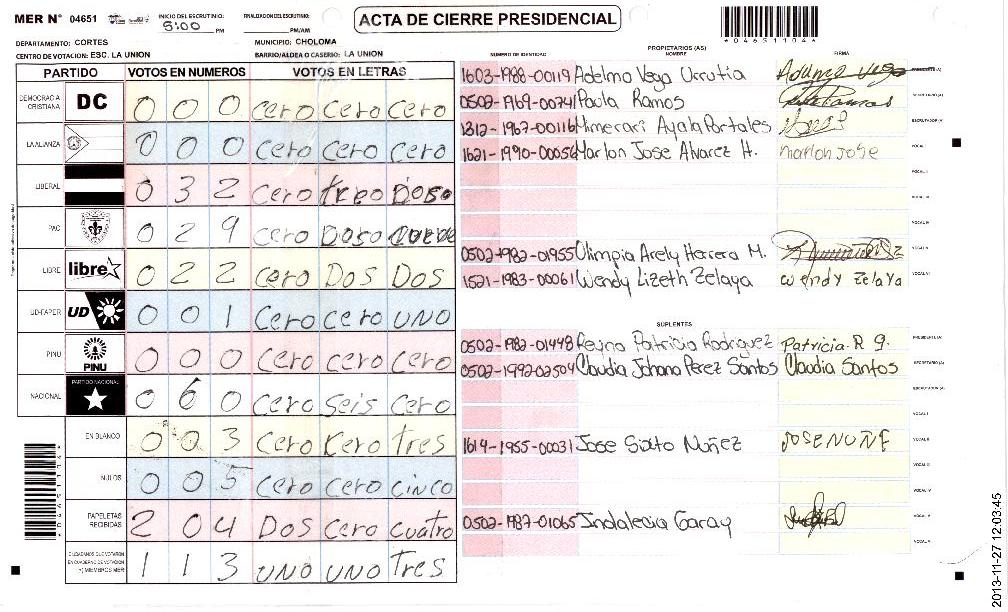 MER N° 04651 INICIO DEL ESCRUTINIO: 5:00 PM FINALIZACION DEL ESCRUTINIO: PM/AM
ACTA DE CIERRE PRESIDENCIAL
*04651104*
DEPARTAMENTO: CORTES MUNICIPIO: CHOLOMA
CENTRO DE VOTACION: ESC. LA UNION BARRIO/ALDEA O CASERIO: LA UNION
PARTIDO VOTOS EN NUMEROS VOTOS EN LETRAS
DEMOCRACIA CRISTIANA DC 0 0 0 cero cero cero
LA ALIANZA 0 0 0 cero cero cero
LIBERAL 0 3 2 cero
PAC 0 2 9 cero
LIBRE libre 0 2 2 cero Dos Dos
UD-FAPER UD 0 0 1 cero cero uno
PINU PINU 0 0 0 cero cero cero
NACIONAL PARTIDO NACIONAL 0 6 0 cero seis cero
EN BLANCO 0 0 3 cero tres
NULOS 0 0 5 cero cero cinco
PAPELETAS RECIBIDAS 2 0 4 Dos cero cuatro
CIUDADANOS QUE VOTARON EN CUADERNO DE VOTACION Y MIEMBROS MER 1 1 3 uno uno Tres
PROPIETARIOS (AS)
NUMERO DE IDENTIDAD NOMBRE FIRMA
1603-1988-00119 Adelmo Vega Urrutia PRESIDENTE (A)
0502-1969-00741 Paula Ramos SECRETARIO (A)
1312-1967-00116 Ayala Portales ESCRUTADOR (A)
1621-1990-00056 Marlon Jose Alvarez H. marlon Jose VOCAL I
VOCAL II
VOCAL III
VOCAL IV
0502-1982-01955 Olimpia Arely Herrera M. VOCAL V
1521-1983-00061 Wendy Lizeth Zelaya wendy zelaya VOCAL VI
SUPLENTES
0502-1982-01448 Reyna Patricia Rodriguez Patricia R g. PRESIDENTE (A)
0502-1992-02504 Claudia Johana Perez Santos Claudia Santos SECRETARIO (A)
ESCRUTADOR (A)
VOCAL I
1614-1955-00031 Jose Sixto Nuñez JOSE NUÑE VOCAL II
VOCAL III
VOCAL IV
0502-1987-01065 Indalecia Garay VOCAL V
VOCAL VI
2013-11-27 12:03:45